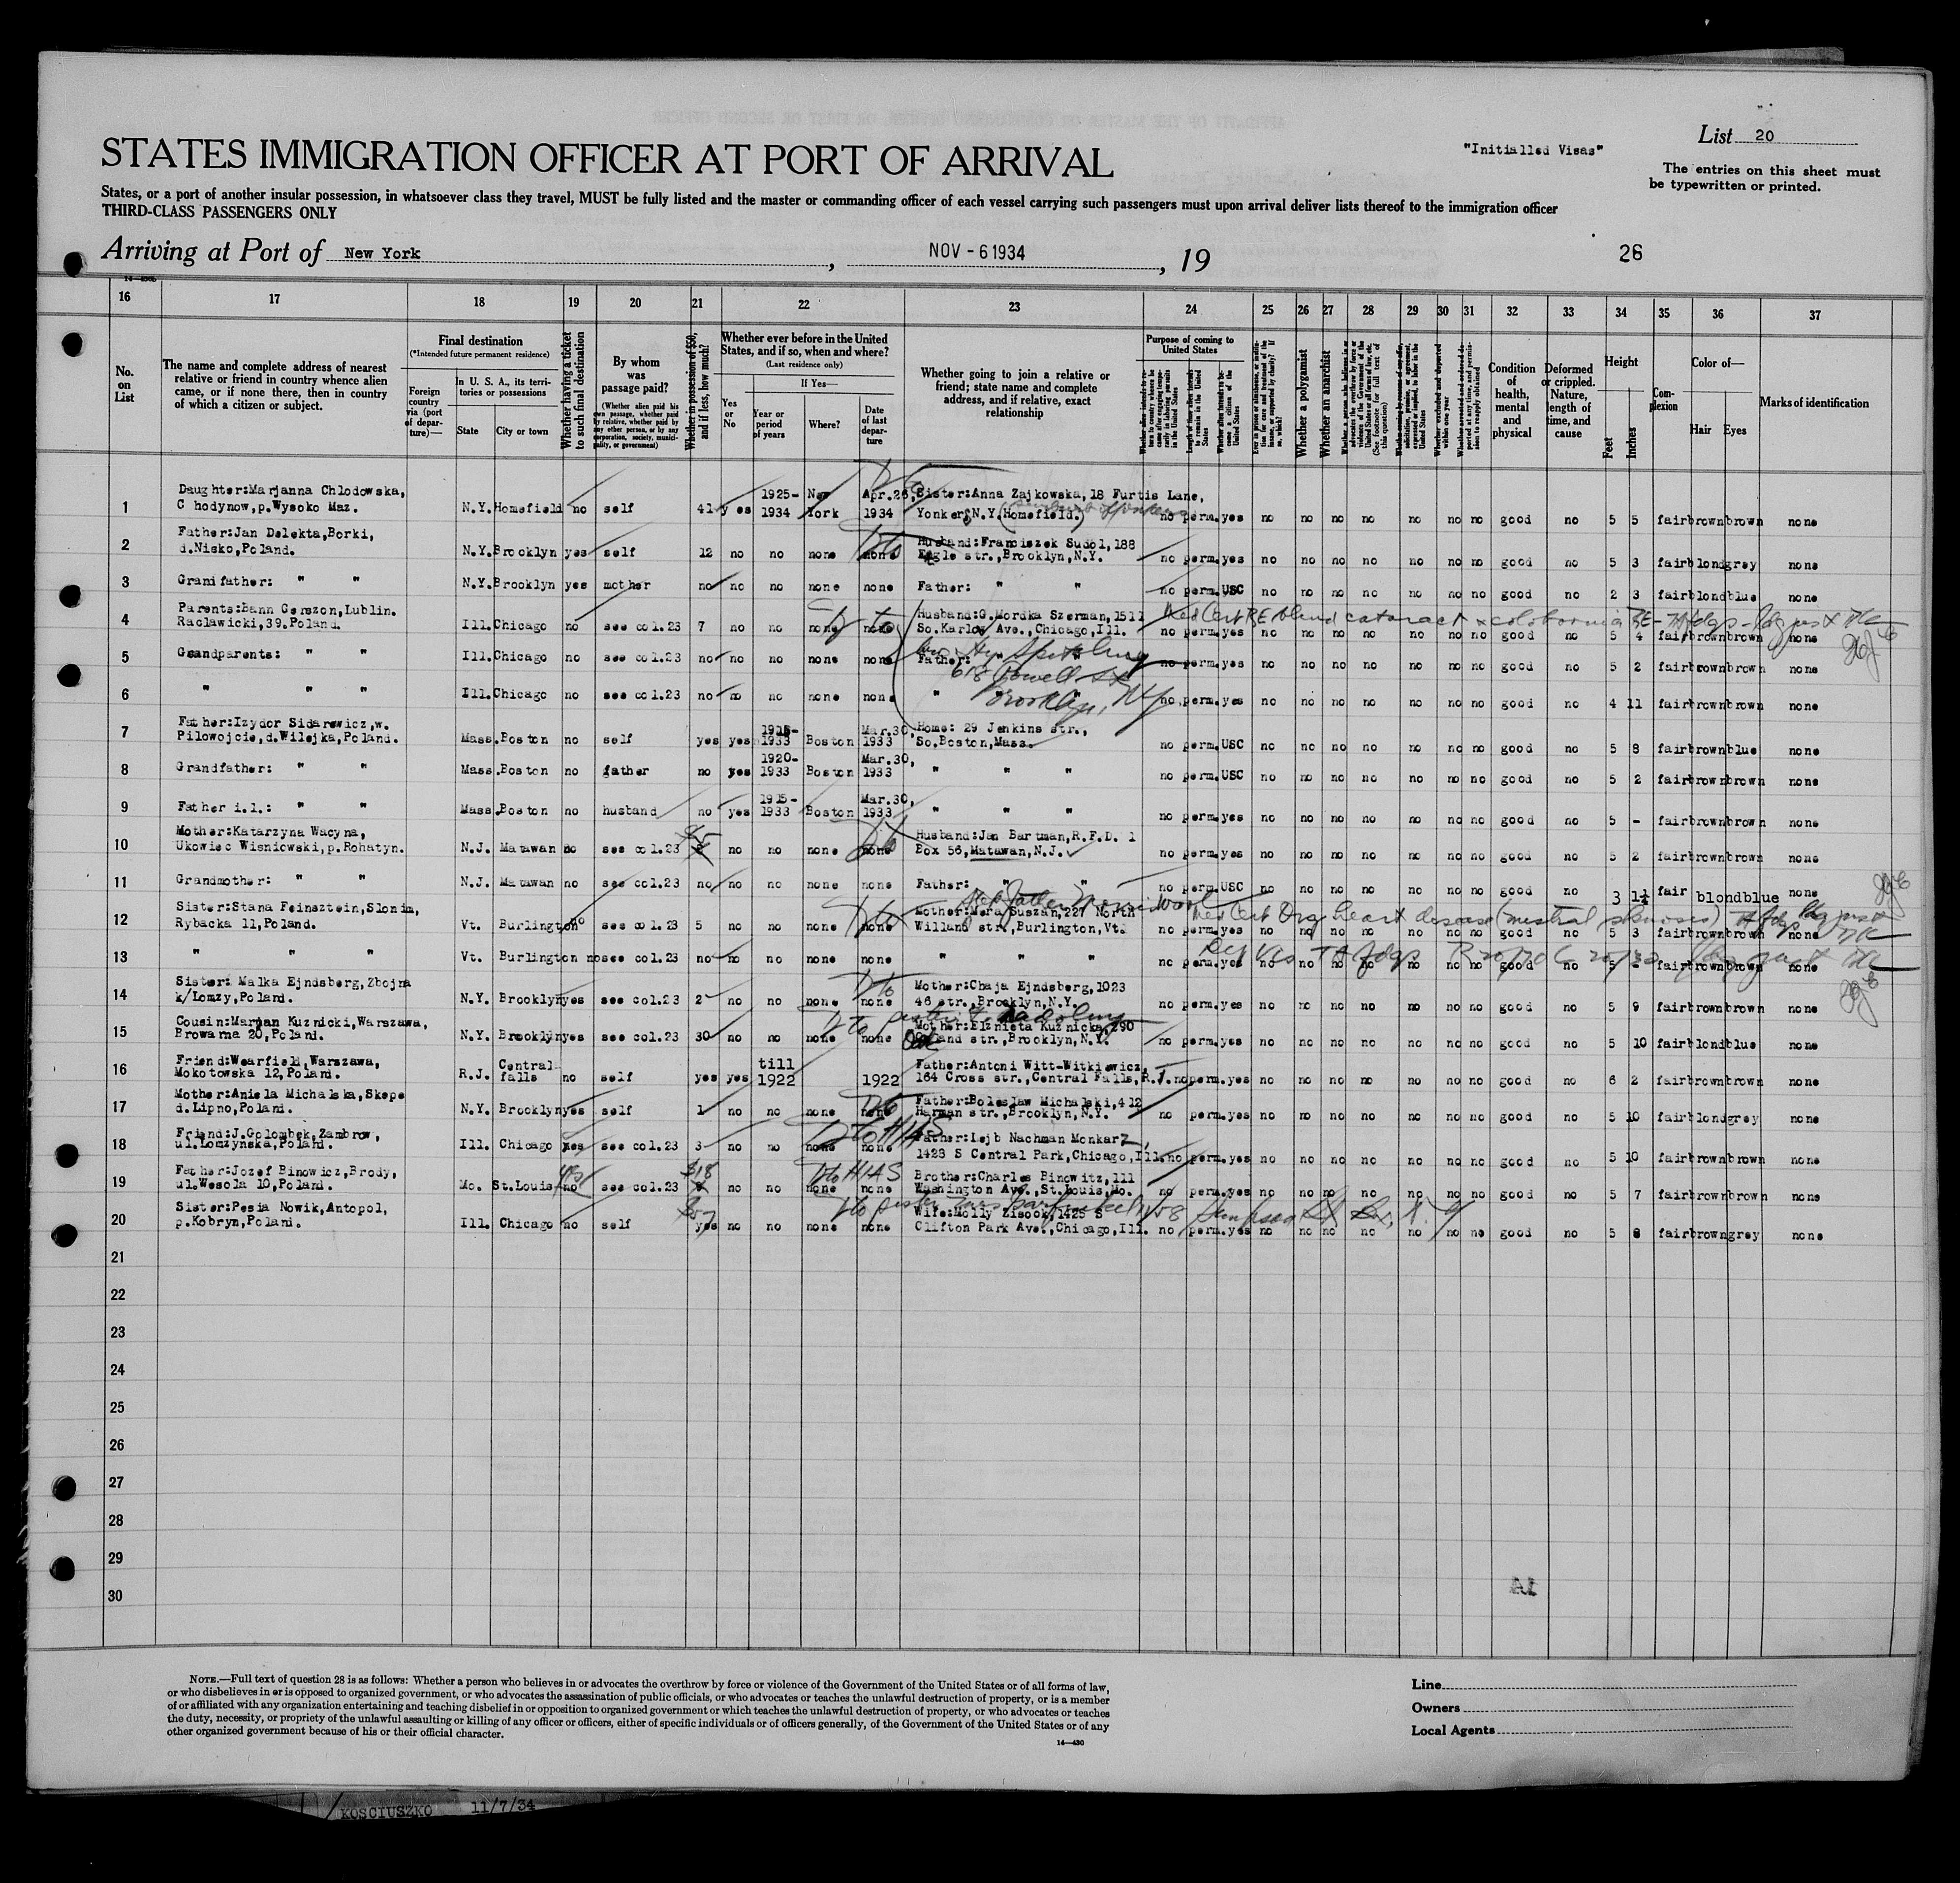 List 20
STATES IMMIGRATION OFFICER AT PORT OF ARRIVAL
"Initialled Visas"
The entries on this sheet must
be typewritten or printed.
States, or a port of another insular possession, in whatsoever class they travel, MUST be fully listed and the master or commanding officer of each vessel carrying such passengers must upon arrival deliver lists thereof to the immigration officer
THIRD-CLASS PASSENGERS ONLY
Arriving at Port of New York, NOV - 6 1934, 19
26
16 17 18 19 20 21 22 23 24 25 26 27 28 29 30 31 32 33 34 35 36 37
No. on List
The name and complete address of nearest relative or friend in country whence alien came, or if none there, then in country of which a citizen or subject.
Final destination
(*Intended future permanent residence)
Foreign country via (port of departure)—
In U. S. A., its territories or possessions
State
City or town
Whether having a ticket to such final destination
By whom was passage paid?
(Whether alien paid his own passage, whether paid by relative, whether paid by any other person, or by any corporation, society, municipality, or government)
Whether in possession of $50, and if less, how much?
Whether ever before in the United States, and if so, when and where?
(Last residence only)
Yes or No
If Yes—
Year or period of years
Where?
Date of last departure
Whether going to join a relative or friend; state name and complete address, and if relative, exact relationship
Purpose of coming to United States
Whether a polygamist
Whether an anarchist
Condition of health, mental and physical
Deformed or crippled. Nature, length of time, and cause
Height
Feet
Inches
Complexion
Color of—
Hair
Eyes
Marks of identification
1 Daughter:Marjanna Chlodowska, C hodynow,p.Wysoko Maz. N.Y. Homefield no self 41 yes 1925-1934 New York Apr.26, 1934 Sister:Anna Zajkowska, 18 Furtis Lane, Yonkers N.Y.(Homefield.) no perm. yes no no no no no no no good no 5 5 fair brown brown none
2 Father:Jan Delekta,Borki, d.Nisko,Poland. N.Y. Brooklyn yes self 12 no no none none Husband:Franciszek Sudol,188 Eagle str.,Brooklyn,N.Y. no perm. yes no no no no no no no good no 5 3 fair blond grey none
3 Grandfather: " " N.Y. Brooklyn yes mother no no no none none Father: " " no perm. USC no no no no no no no good no 2 3 fair blond blue none
4 Parents:Bann Gerszon,Lublin. Raclawicki,39.Poland. Ill. Chicago no see col.23 7 no no none none Husband:G.Mordka Szerman,1511 So.Karlov Ave.,Chicago,Ill. no perm. yes no no no no no no no good no 5 4 fair brown brown none
5 Grandparents: " " Ill. Chicago no see col.23 no no no none none Father: no perm. yes no no no no no no no good no 5 2 fair brown brown none
618 Powell St
Brooklyn, NY
6 " " " Ill. Chicago no see col.23 no no no none none " no perm. yes no no no no no no no good no 4 11 fair brown brown none
7 Father:Izydor Sidarewicz,w. Pilowojcie,d.Wilejka,Poland. Mass. Boston no self yes yes 1915-1933 Boston Mar.30, 1933 Home: 29 Jenkins str., So.Boston,Mass. no perm. USC no no no no no no no good no 5 8 fair brown blue none
8 Grandfather: " " Mass. Boston no father no yes 1920-1933 Boston Mar.30, 1933 " " " no perm. USC no no no no no no no good no 5 2 fair brown brown none
9 Father i.l.: " " Mass. Boston no husband no yes 1915-1933 Boston Mar.30, 1933 " " " no perm. yes no no no no no no no good no 5 - fair brown brown none
10 Mother:Katarzyna Wacyna, Ukowiec Wisniowski,p.Rohatyn. N.J. Matawan no see col.23 no no none none Husband:Jan Bartman,R.F.D. 1 Box 56,Matawan,N.J. no perm. yes no no no no no no no good no 5 2 fair brown brown none
11 Grandmother: " " N.J. Matawan no see col.23 no no no none none Father: " " no perm. USC no no no no no no no good no 3 1½ fair blond blue none
12 Sister:Stana Feinsztein,Slonim, Rybacka 11,Poland. Vt. Burlington no see col.23 5 no no none none Mother:Mera Suszan,227 North Willand str.,Burlington,Vt. no perm. yes no no no no no no no good no 5 3 fair brown brown none
13 " " " Vt. Burlington no see col.23 no no no none none " " " no perm. yes no no no no no no no good no 5 - fair brown brown none
14 Sister: Malka Ejndsberg,Zbojna k/Lomzy,Poland. N.Y. Brooklyn yes see col.23 2 no no none none Mother:Chaja Ejndsberg,1023 46 str.,Brooklyn,N.Y. no perm. yes no no no no no no no good no 5 9 fair brown brown none
15 Cousin:Marjan Kuznicki,Warszawa, Browarna 20,Poland. N.Y. Brooklyn yes see col.23 30 no no none none Mother:Elznieta Kuznicka,290 str.,Brooklyn,N.Y. no perm. yes no no no no no no no good no 5 10 fair blond blue none
16 Friend:Wearfield,Warszawa, Mokotowska 12,Poland. R.J. Central falls no self yes yes till 1922 1922 Father:Antoni Witt-Witkiewicz, 164 Cross str.,Central Falls,R.J. no perm. yes no no no no no no no good no 6 2 fair brown brown none
17 Mother:Aniela Michalska,Skepe d.Lipno,Poland. N.Y. Brooklyn yes self 1 no no none none Father:Boleslaw Michalski,412 Harman str.,Brooklyn,N.Y. no perm. yes no no no no no no no good no 5 10 fair blond grey none
18 Friend:J.Golombek,Zambrow, ul.Lomzynska,Poland. Ill. Chicago yes see col.23 3 no no none none Father:Lejb Nachman Monkarz, 1423 S Central Park,Chicago,Ill. no perm. yes no no no no no no no good no 5 10 fair brown brown none
19 Father:Jozef Binowicz,Brody, ul.Wesola 10,Poland. Mo. St.Louis no see col.23 $18 no no none none Brother:Charles Binowitz,111 Washington Ave.,St.Louis,Mo. no perm. yes no no no no no no no good no 5 7 fair brown brown none
20 Sister:Pesia Nowik,Antopol, p.Kobryn,Poland. Ill. Chicago no self yes no no none none Wife:Molly Zisook,1425 S Clifton Park Ave.,Chicago,Ill. no perm. yes no no no no no no no good no 5 8 fair brown grey none
21
22
23
24
25
26
27
28
29
30
NOTE.—Full text of question 28 is as follows: Whether a person who believes in or advocates the overthrow by force or violence of the Government of the United States or of all forms of law,
or who disbelieves in or is opposed to organized government, or who advocates the assassination of public officials, or who advocates or teaches the unlawful destruction of property, or is a member
of or affiliated with any organization entertaining and teaching disbelief in or opposition to organized government or which teaches the unlawful destruction of property, or who advocates or teaches
the duty, necessity, or propriety of the unlawful assaulting or killing of any officer or officers, either of specific individuals or of officers generally, of the Government of the United States or of any
other organized government because of his or their official character.
14—430
Line
Owners
Local Agents
KOSCIUSZKO 11/7/34